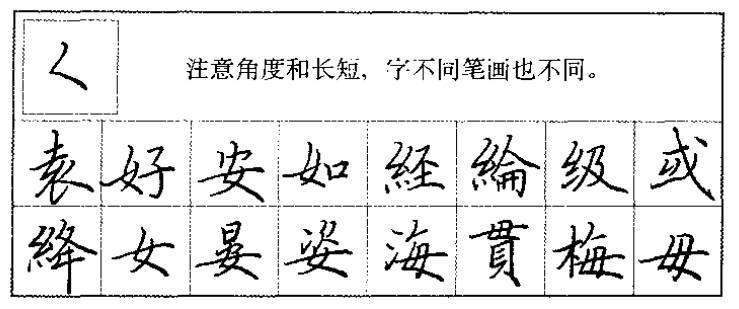 𡿨 注意角度和长短,字不同笔画也不同。
袁好安如経綸级或
絳女晏姿海貫梅毋